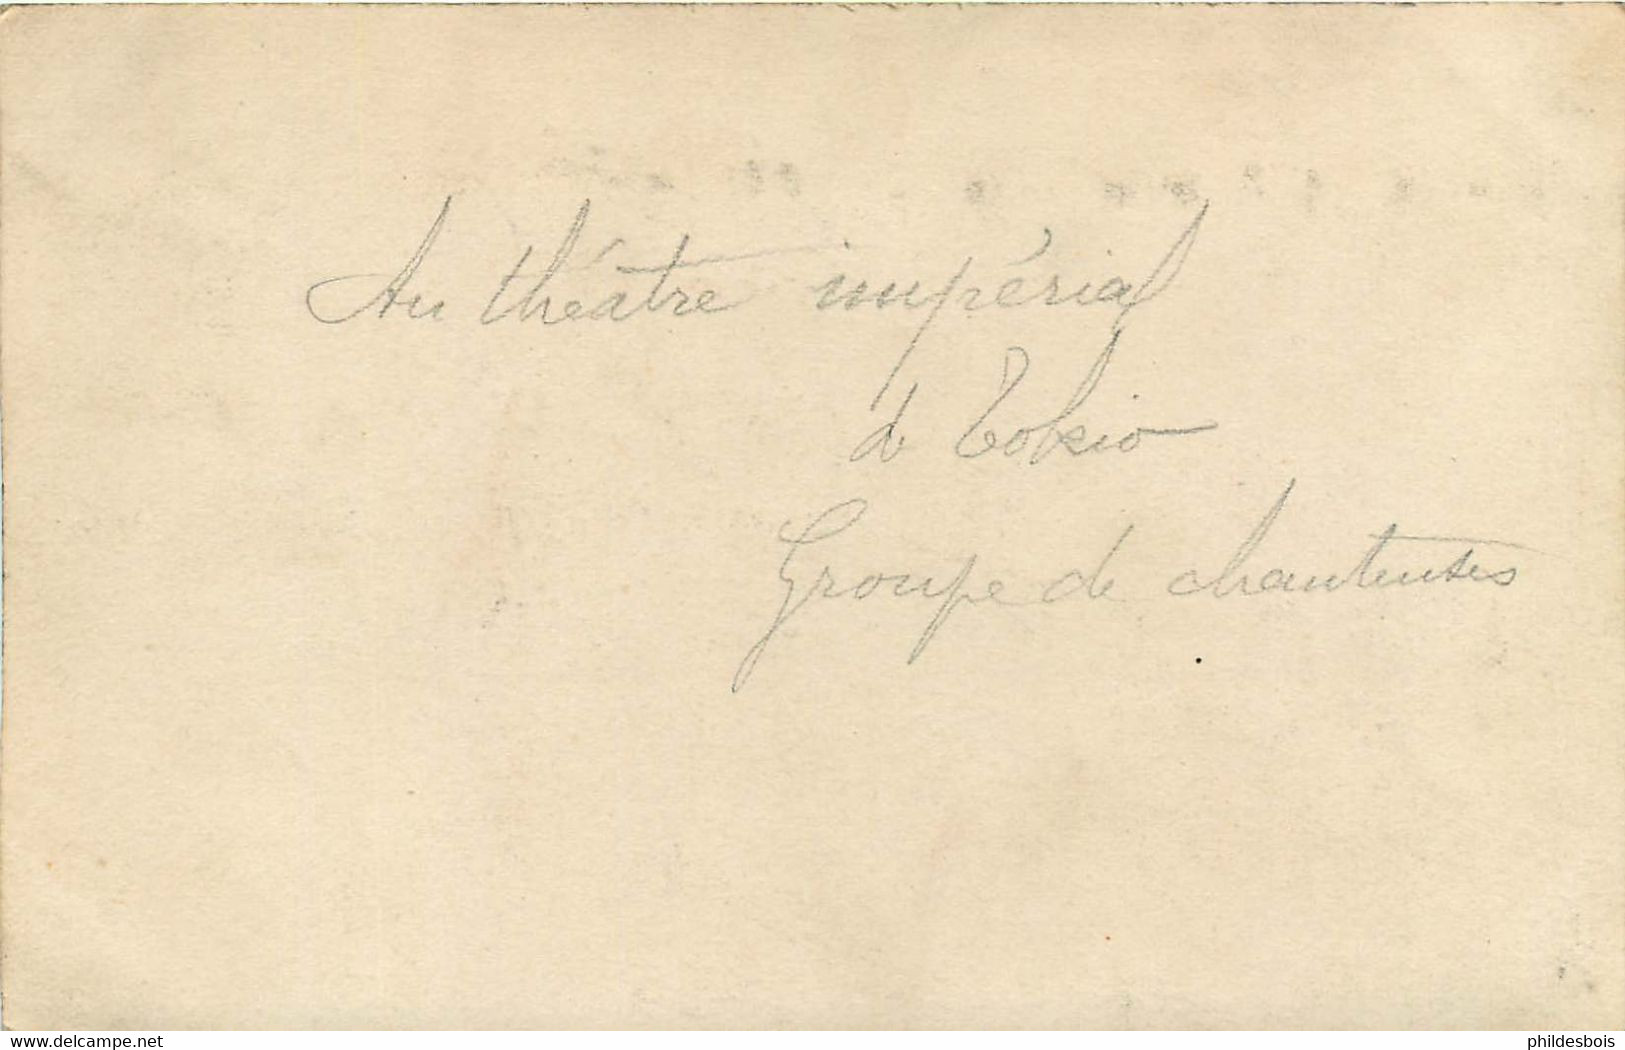 Au théâtre impérial
de Tokio
Groupe de chanteuses
www.delcampe.net
phildesbois